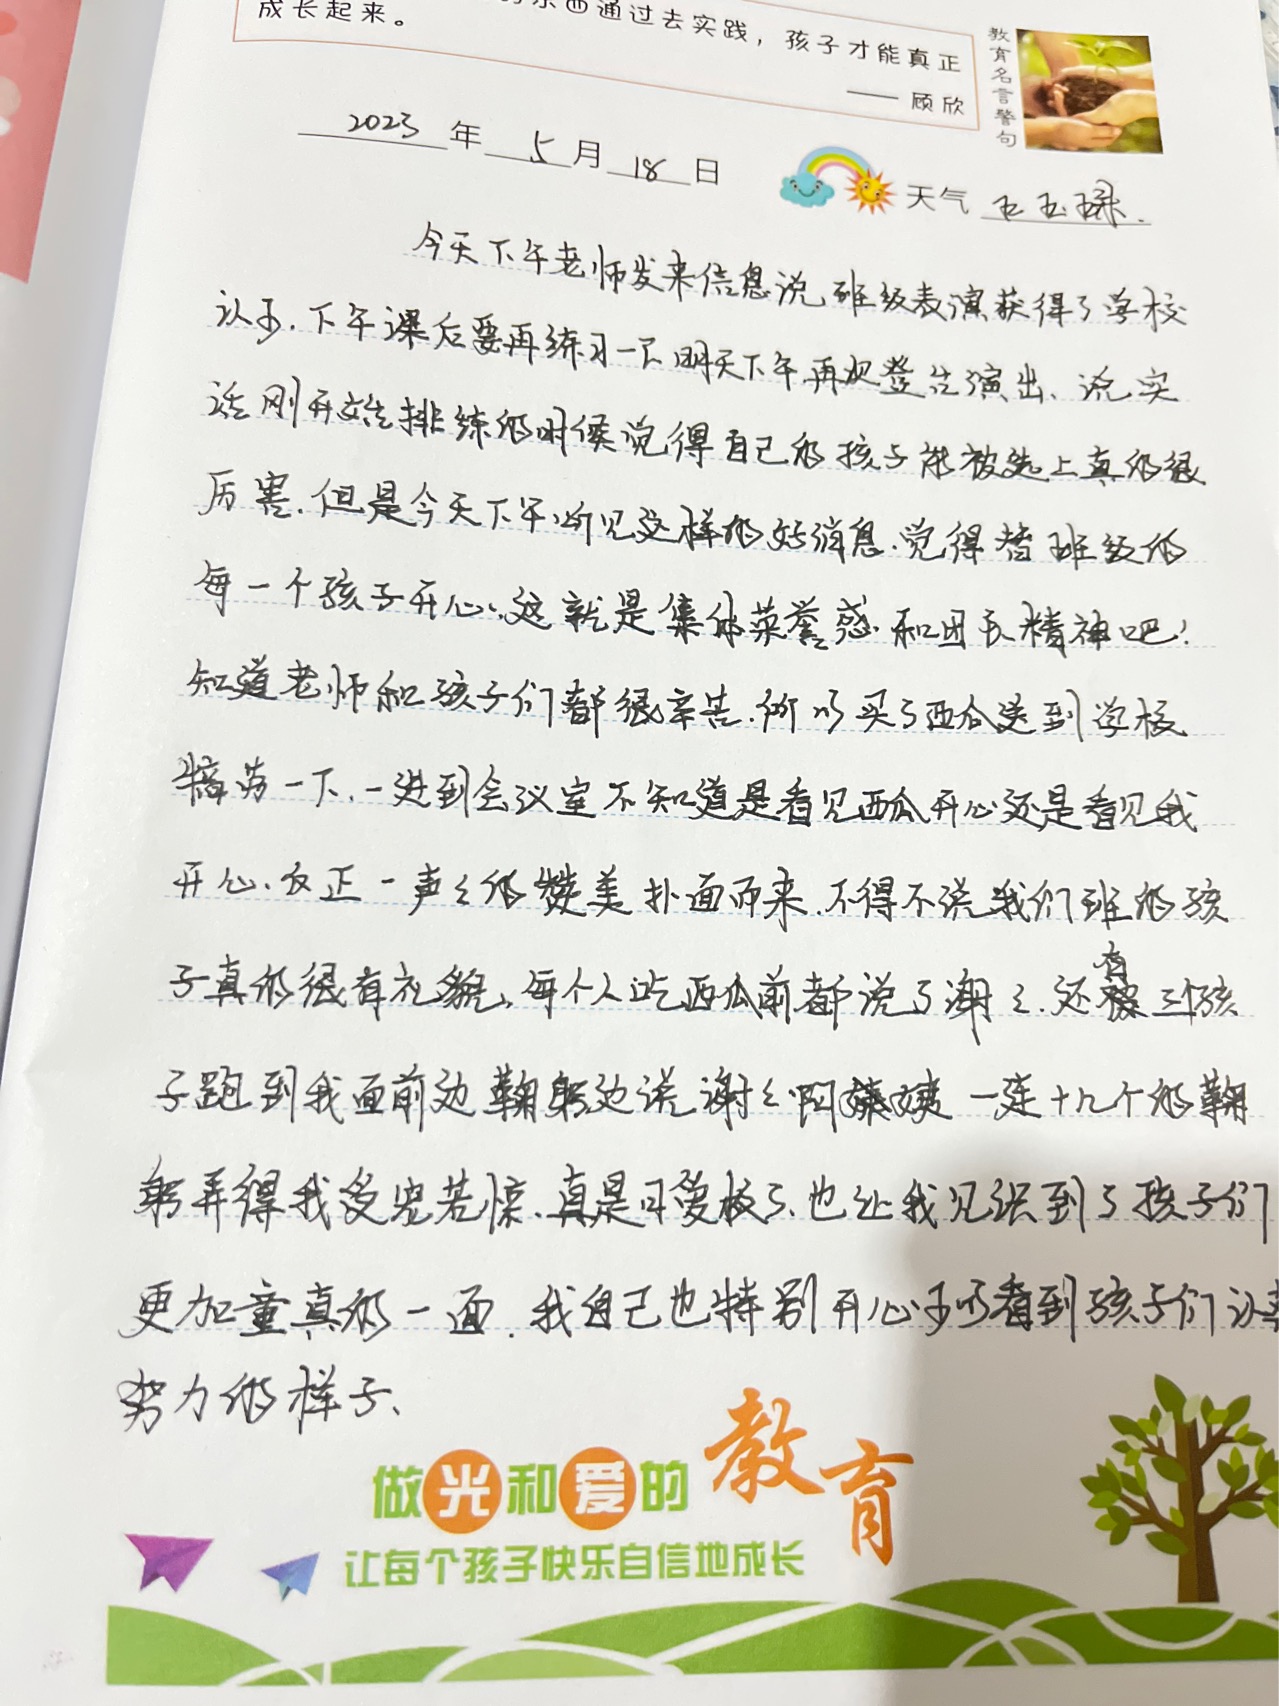 东西通过去实践，孩子才能真正
成长起来。
—— 顾欣
教育名言警句
2023年5月18日
天气
今天下午老师发来信息说班级表演获得了学校
认可.下午课后要再练习一下明天下午再次登台演出、说实
话刚开始排练的时候觉得自己的孩子能被选上真的很
厉害.但是今天下午听见这样的好消息.觉得替班级的
每一个孩子开心.这就是集体荣誉感和团队精神吧!
知道老师和孩子们都很辛苦.所以买了西瓜送到学校
犒劳一下.一进到会议室不知道是看见西瓜开心还是看见我
开心.反正一声声的赞美扑面而来.不得不说我们班的孩
子真的很有礼貌、每个人吃西瓜前都说了谢谢.还有三个孩
子跑到我面前边鞠躬边说谢谢阿姨 一连十几个的鞠
躬弄得我受宠若惊.真是可爱极了.也让我见识到了孩子们
更加童真的一面.我自己也特别开心可以看到孩子们认真
努力的样子.
做光和爱的教育
让每个孩子快乐自信地成长